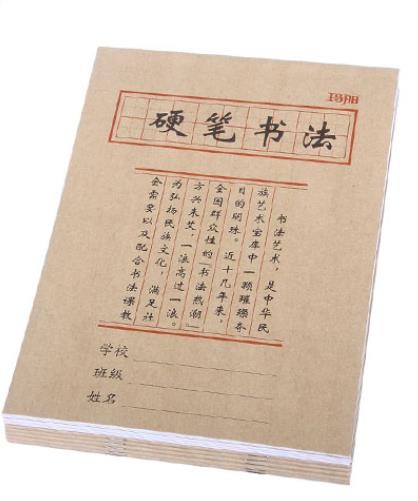 玛阳
硬笔书法
书法艺术，是中华民
族艺术宝库中一颗璀璨夺
目的明珠。近十几年来，
全国群众性的“书法热潮”
方兴未艾，一浪高过一浪。
为弘扬民族文化，满足社
会需要以及配合书法课教
学校
班级
姓名